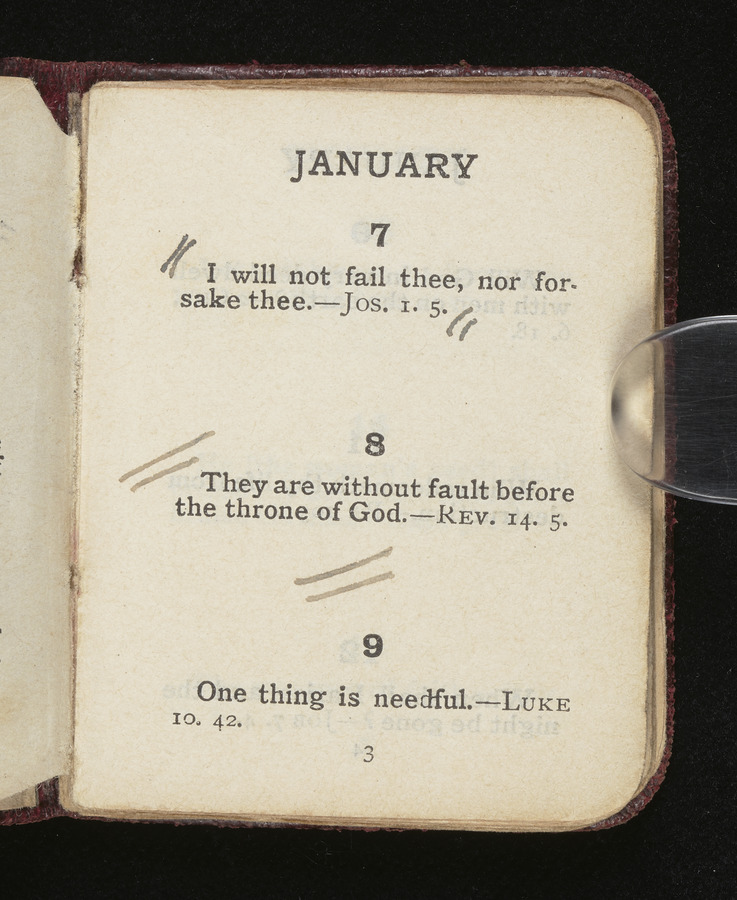 JANUARY
7
I will not fail thee, nor for-
sake thee.—Jos. 1. 5.
8
They are without fault before
the throne of God.—Rev. 14. 5.
9
One thing is needful.—Luke
10. 42.
3